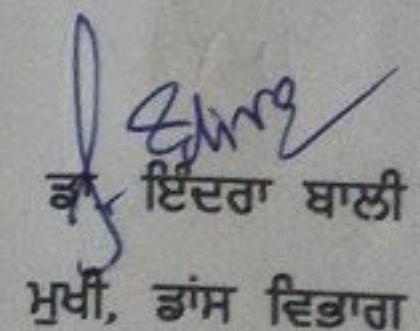 ਡਾ ਇੰਦਰਾ ਬਾਲੀ
ਮੁਖੀ, ਡਾਂਸ ਵਿਭਾਗ